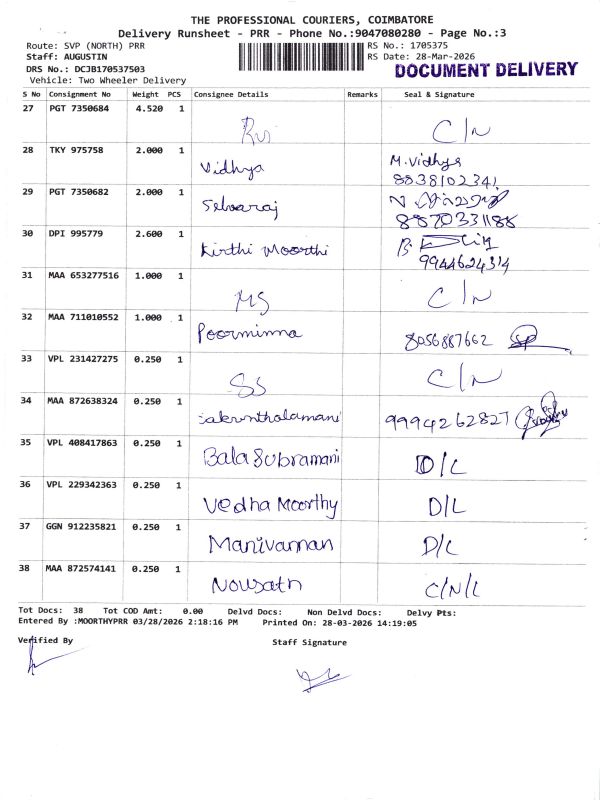 THE PROFESSIONAL COURIERS, COIMBATORE
Delivery Runsheet - PRR - Phone No.:9047080280 - Page No.:3
Route: SVP (NORTH) PRR RS No.: 1705375
Staff: AUGUSTIN RS Date: 28-Mar-2026
DRS No.: DCJB170537503 DOCUMENT DELIVERY
Vehicle: Two Wheeler Delivery
S No Consignment No Weight PCS Consignee Details Remarks Seal & Signature
27 PGT 7350684 4.520 1
C/N
28 TKY 975758 2.000 1
Vidhya M.Vidhya
8838102341
29 PGT 7350682 2.000 1
Selvaraj
8870331188
30 DPI 995779 2.600 1
Kirthi Moorthi
9944624314
31 MAA 653277516 1.000 1
MS C/N
32 MAA 711010552 1.000 1
Poorminma 8056887662
33 VPL 231427275 0.250 1
SS C/N
34 MAA 872638324 0.250 1
Sakunthalamani 9994262827
35 VPL 408417863 0.250 1
Bala Subramani D/L
36 VPL 229342363 0.250 1
Vedha Moorthy D/L
37 GGN 912235821 0.250 1
Manivannan D/L
38 MAA 872574141 0.250 1
Nowsath C/N/L
Tot Docs: 38 Tot COD Amt: 0.00 Delvd Docs: Non Delvd Docs: Delvy Pts:
Entered By :MOORTHYPRR 03/28/2026 2:18:16 PM Printed On: 28-03-2026 14:19:05
Verified By Staff Signature